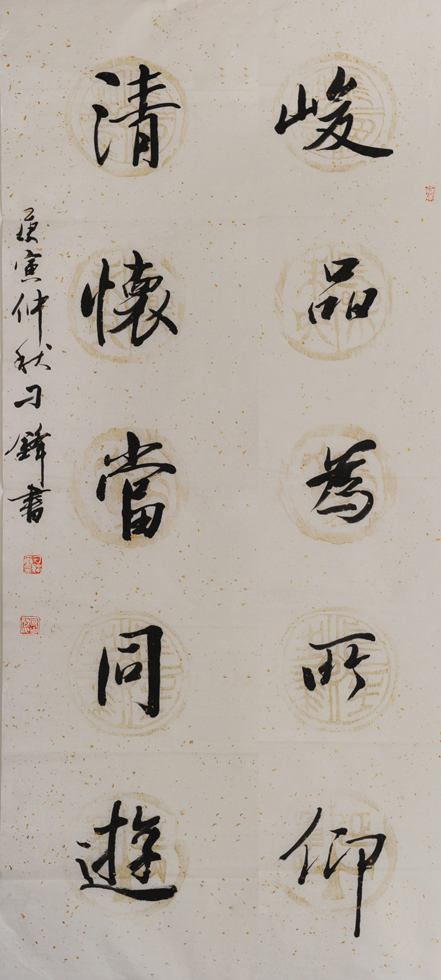 峻品為所仰
清懷當同遊
庚寅仲秋刁鋒書